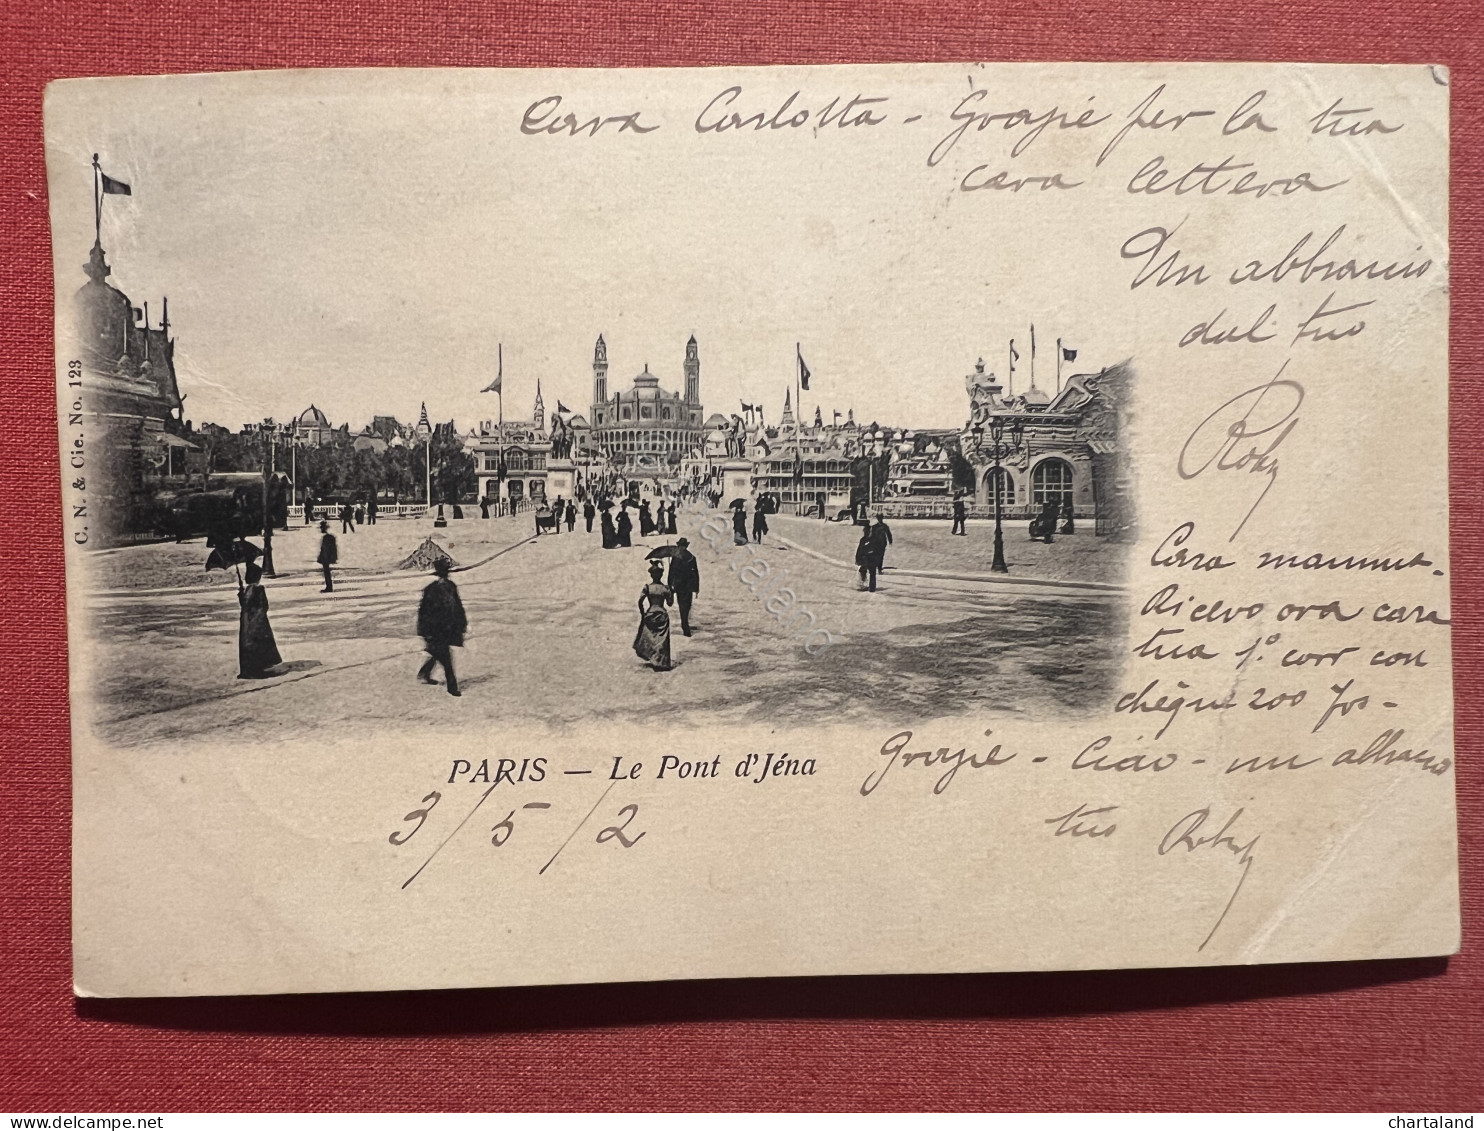 Cara Carlotta - Grazie per la tua
cara lettera
Un abbraccio
dal tuo
Roby
Cara mammet-
Ricevo ora cara
tua 1.° corr con
chèque 200 frs-
Grazie - Ciao - un abbraccio
tuo Roby
PARIS — Le Pont d'Jéna
3/5/2
C. N. & Cie. No. 123
chartaland